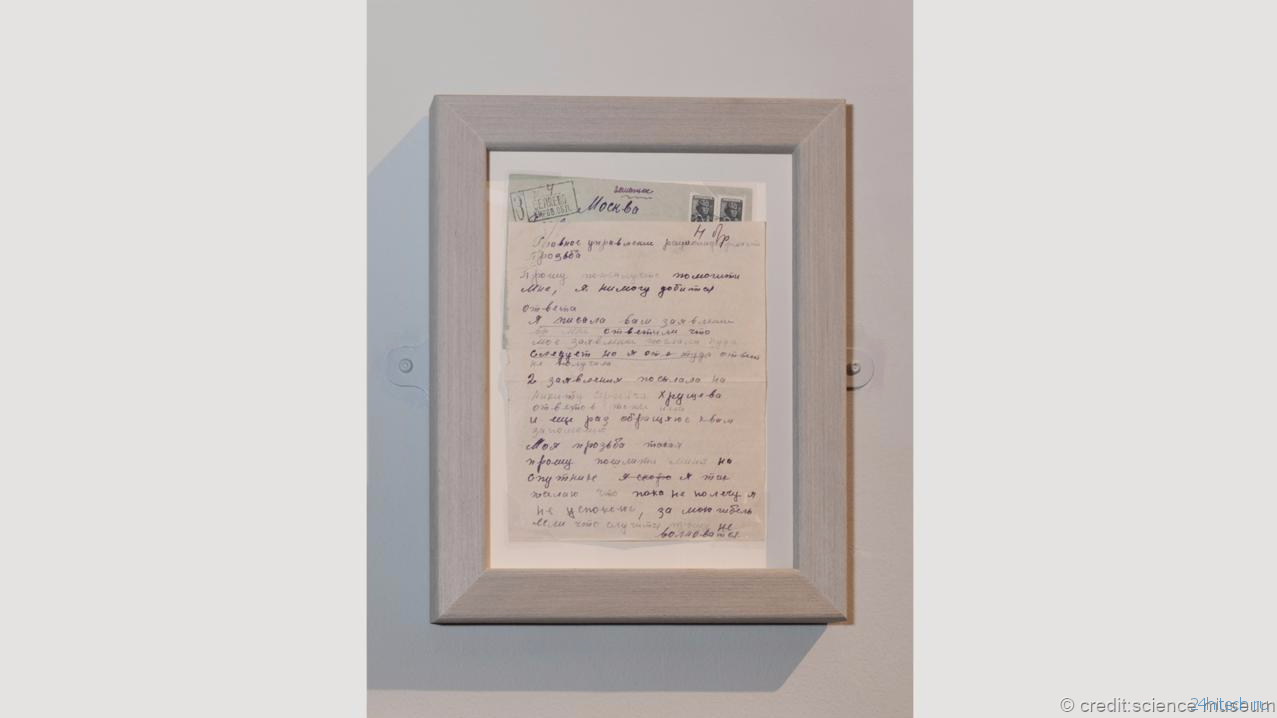 4
заказное
Москва
Главное управление
прозьба
Прошу пожалуйста помогити
мне, я нимогу добится
ответа
Я писала вам заявление
вы мне ответили что
мое заявление послали куда
следует но я оттуда ответ
не получила
2 заявления посылала на
Никиту Сергеича Хрущева
ответов тоже
и еще раз обращаюс к вам
запомощю
Моя прозьба такая
прошу послати миня на
спутнике я скоро я так
желаю что пока не полечу я
не успокоюс, за мою гибель
если что случится прошу не
волноватся
© credit:science museum
24hitech.ru